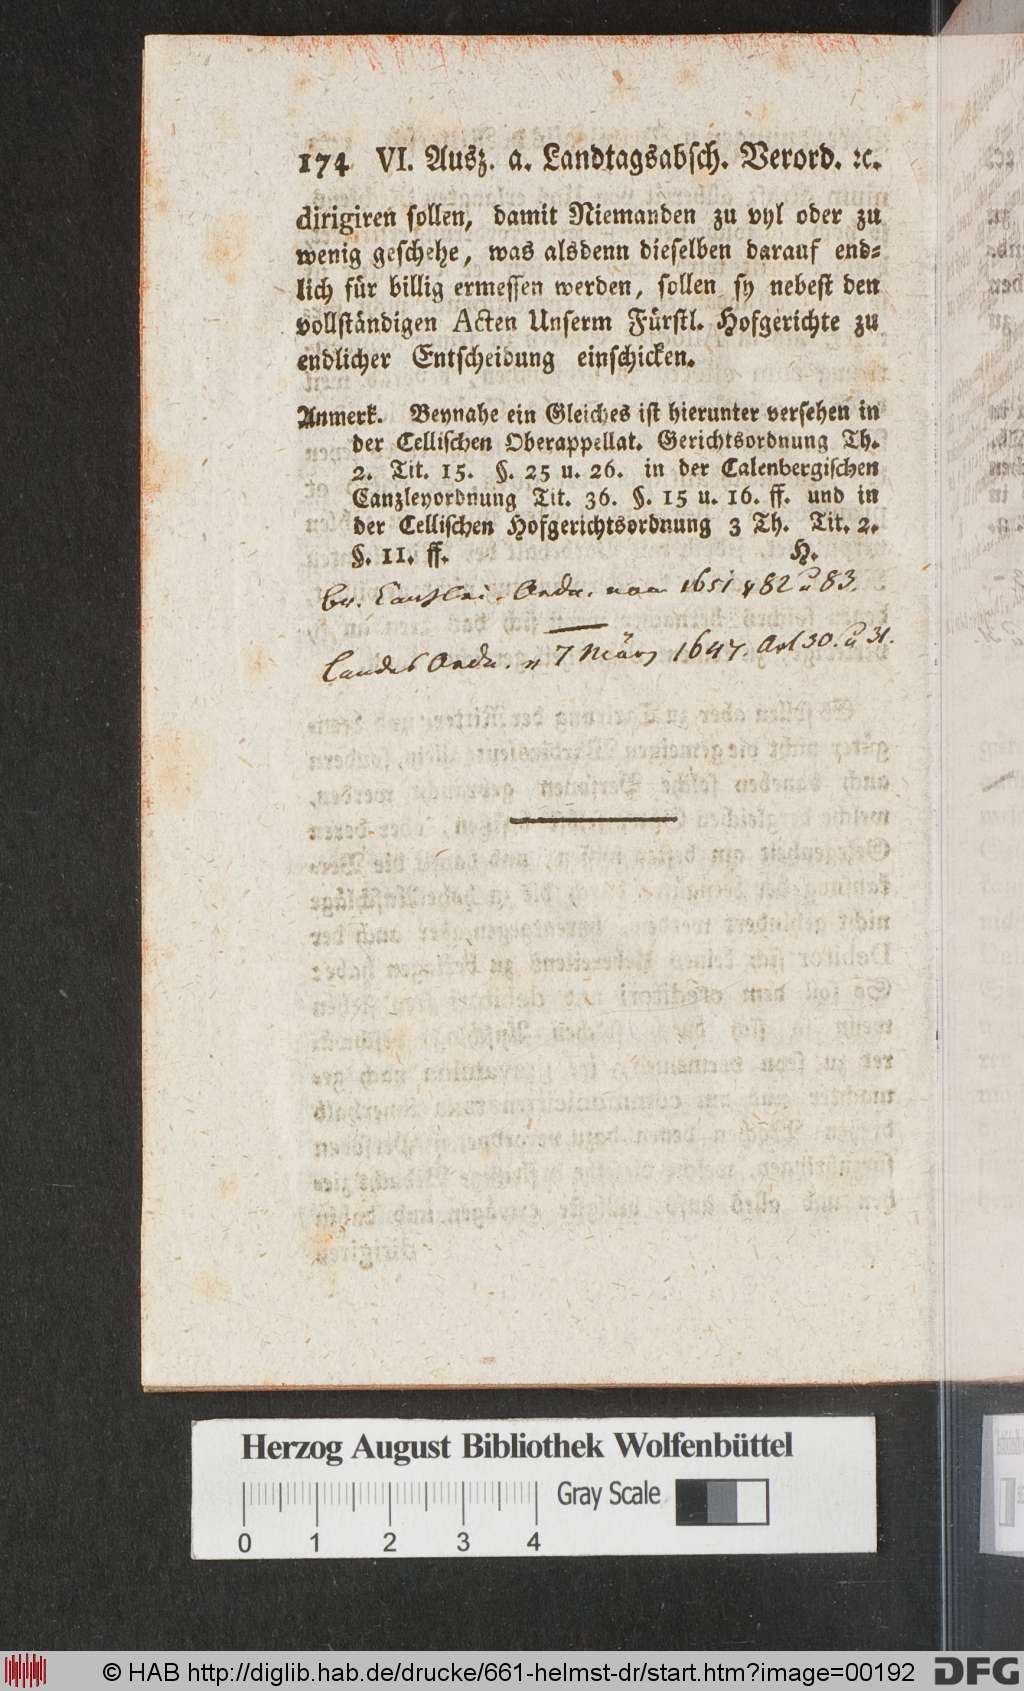 174 VI. Ausz. a. Landtagsabsch. Verord. ꝛc.
dirigiren sollen, damit Niemanden zu vyl oder zu
wenig geschehe, was alsdenn dieselben darauf end-
lich für billig ermessen werden, sollen sy nebest den
vollständigen Acten Unserm Fürstl. Hofgerichte zu
endlicher Entscheidung einschicken.
Anmerk. Beynahe ein Gleiches ist hierunter versehen in
der Cellischen Oberappellat. Gerichtsordnung Th.
2. Tit. 15. §. 25 u. 26. in der Calenbergischen
Canzleyordnung Tit. 36. §. 15 u. 16. ff. und in
der Cellischen Hofgerichtsordnung 3 Th. Tit. 2.
§. 11. ff. H.
Canzlei. Ordn. von 1651 § 82 u 83.
Landes Ordn. v 7 März 1647. Art 30. u 31.
Herzog August Bibliothek Wolfenbüttel
0 1 2 3 4 Gray Scale
© HAB http://diglib.hab.de/drucke/661-helmst-dr/start.htm?image=00192 DFG